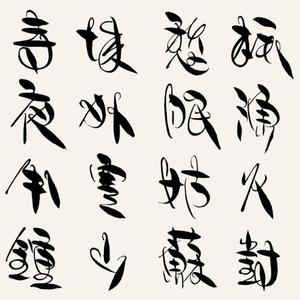 楓漁火對
愁眠姑蘇
城外寒山
寺夜半鐘